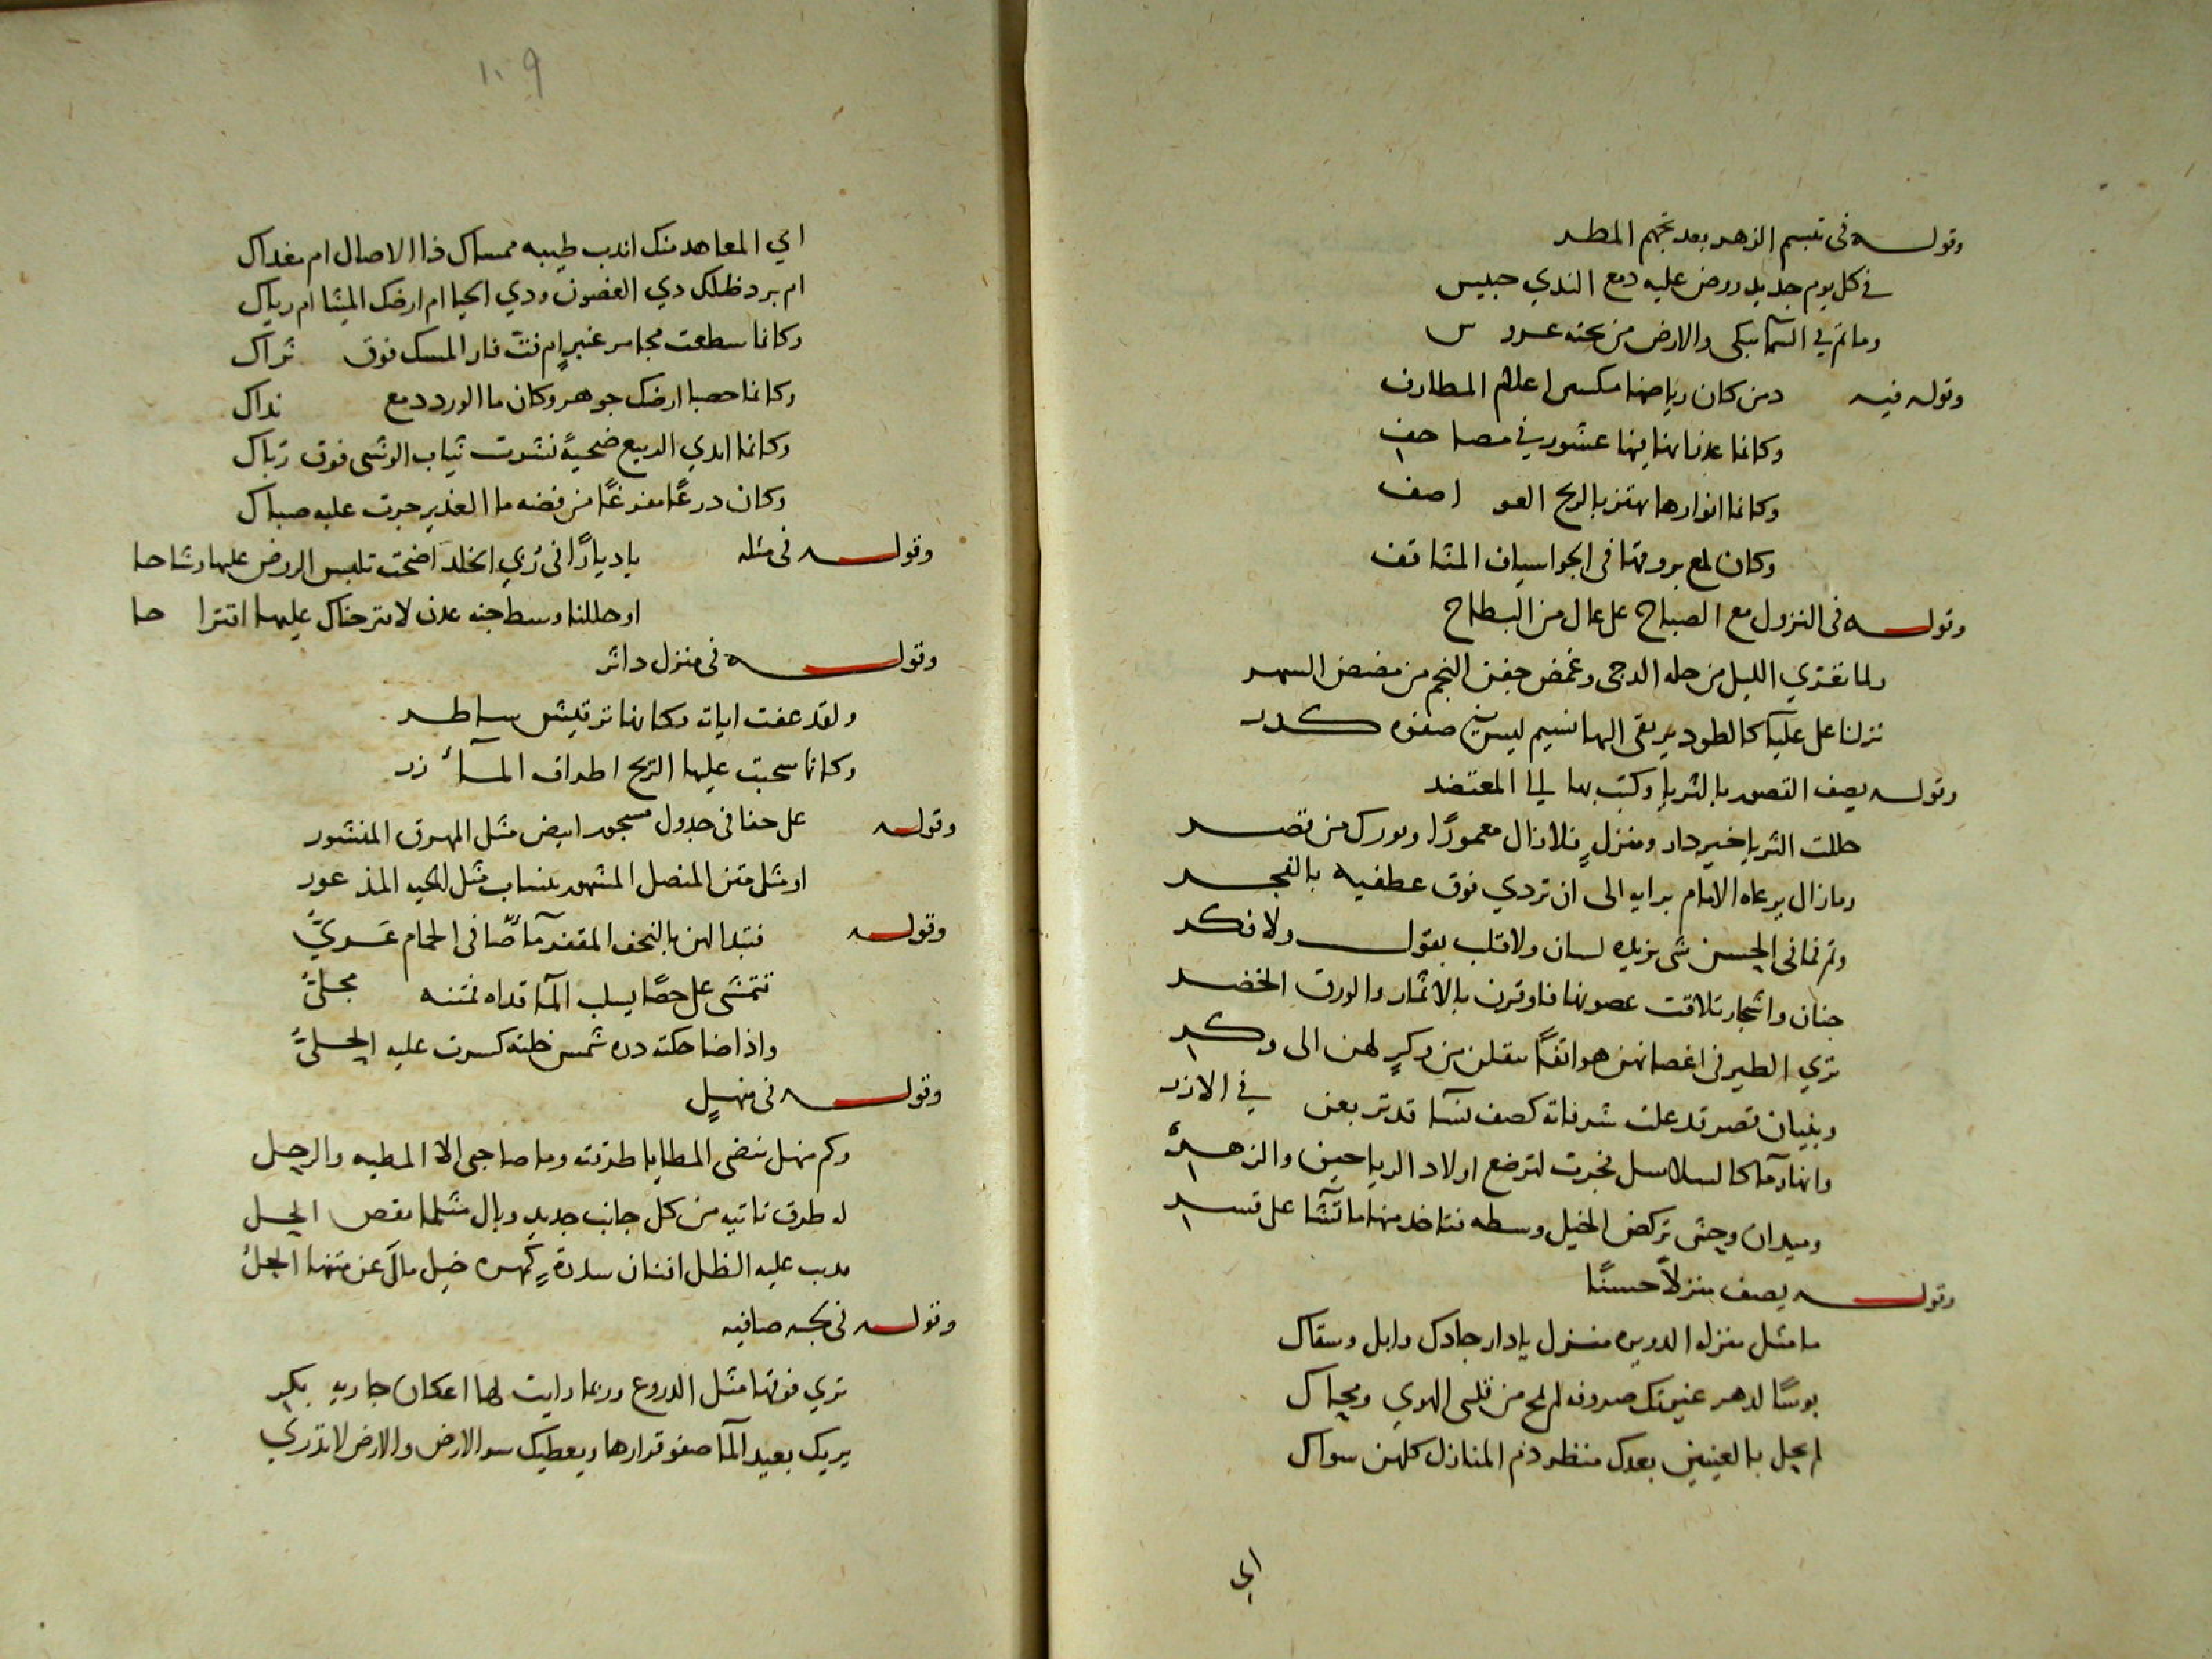 وقوله فى تبسم الزهر بعد تجهم المطر
في كل يوم جديد روض عليه دمع الندي حبيس
وماتم في السما يبكى والارض من تحته عروس
وقوله فيه دمن كان رياضها مكسى اعلام المطارف
وكانما غدرانها فيها عشور في مصاحف
وكانما انوارها تهتز بالريح العواصف
وكان لمع بروقها فى الجو اسياف المثاقف
وقوله فى النزول مع الصباح على عال من البطاح
ولما تعري الليل من حله الدجى وغمض جفن النجم من مضض السهر
نزلنا على عليآ كالطود يرتقى اليها نسيم ليس فى صفوه كدر
وقوله يصف القصور بالثريا وكتب بها الي المعتضد
حللت الثريا خير دار ومنزلٍ فلا زال معمورًا وبورك من قصر
وما زال يرعاه الامام برايه الى ان تردي فوق عطفيه بالفجر
وتم فما فى الحسن شى يزيده لسان ولا قلب بقول ولا فكر
جنان واشجار تلاقت غصونها فاوقرن بالاثمار والورق الخضر
تري الطير فى اغصانهن هواتفًا تنقلن من وكرٍ لهن الى وكر
وبنيان قصر قد علت شرفاته كصف نسآ قد تربعن في الازر
وانهار مآ كالسلاسل فجرت لترضع اولاد الرياحين والزهر
وميدان وحشى تركض الخيل وسطه فتاخذ منها ما تشآ على قسر
وقوله يصف منزلاً حسنًا
ما مثل منزله الدويره منزل يا دار جادك وابل وسقاك
بوسًا لدهر غيرتك صروفه لم يمح من قلبى الهوي ومحاك
لم يحل بالعينين بعدك منظر ذم المنازل كلهن سواك
اي
١٠٩
اي المعاهد منك اندب طيبه ممساك ذا الاصال ام مغداك
ام برد ظلك ذي الغصون وذي الحيا ام ارضك الميثا ام رياك
وكانما سطعت مجامر عنبرٍ ام فت فار المسك فوق ثراك
وكانما حصبا ارضك جوهر وكان ما الورد دمع نداك
وكانما ايدي الربيع ضحيةً نشرت ثياب الوشى فوق رباك
وكان درعًا مفرغًا من فضه ما الغدير جرت عليه صباك
وقوله فى مثله يا ديارًا فى زي الخلد اضحت تلبس الروض عليها وشاحا
او حللنا وسط جنه عدن لاقترحناك عليها اقتراحا
وقوله فى منزل داثر
ولقد عفت اياته وكانها ترقيش ساطر
وكانما سحبت عليها الريح اطراف المآزر
وقوله على حفافى جدول مسجور ابيض مثل المهرق المنشور
او مثل متن المنصل المشهور ينساب مثل الحيه المذعور
وقوله فتبدا لهن بالنجف المقفر مآ صافى الجمام عَرىُّ
تتمشى على حصًا يسلب المآ قذاه فمتنه مجلىُّ
واذا ضاحكته دره شمس خلته كسرت عليه الحلىُّ
وقوله فى منهلٍ
وكم منهل ينضى المطايا طرقته وما صاحبى الا المطيه والرحل
له طرق تاتيه من كل جانب جديد وبال مثلما نقض الحبل
يدب عليه الظل افنان سدرةٍ كمهره خيل مال عن متنها الجلُّ
وقوله فى بحيره صافيه
تري فوقها مثل الدروع وربما رايت لها اعكان جاريه بكر
يريك بعيد المآ صفو قرارها ويعطيك سر الارض والارض لا تدري